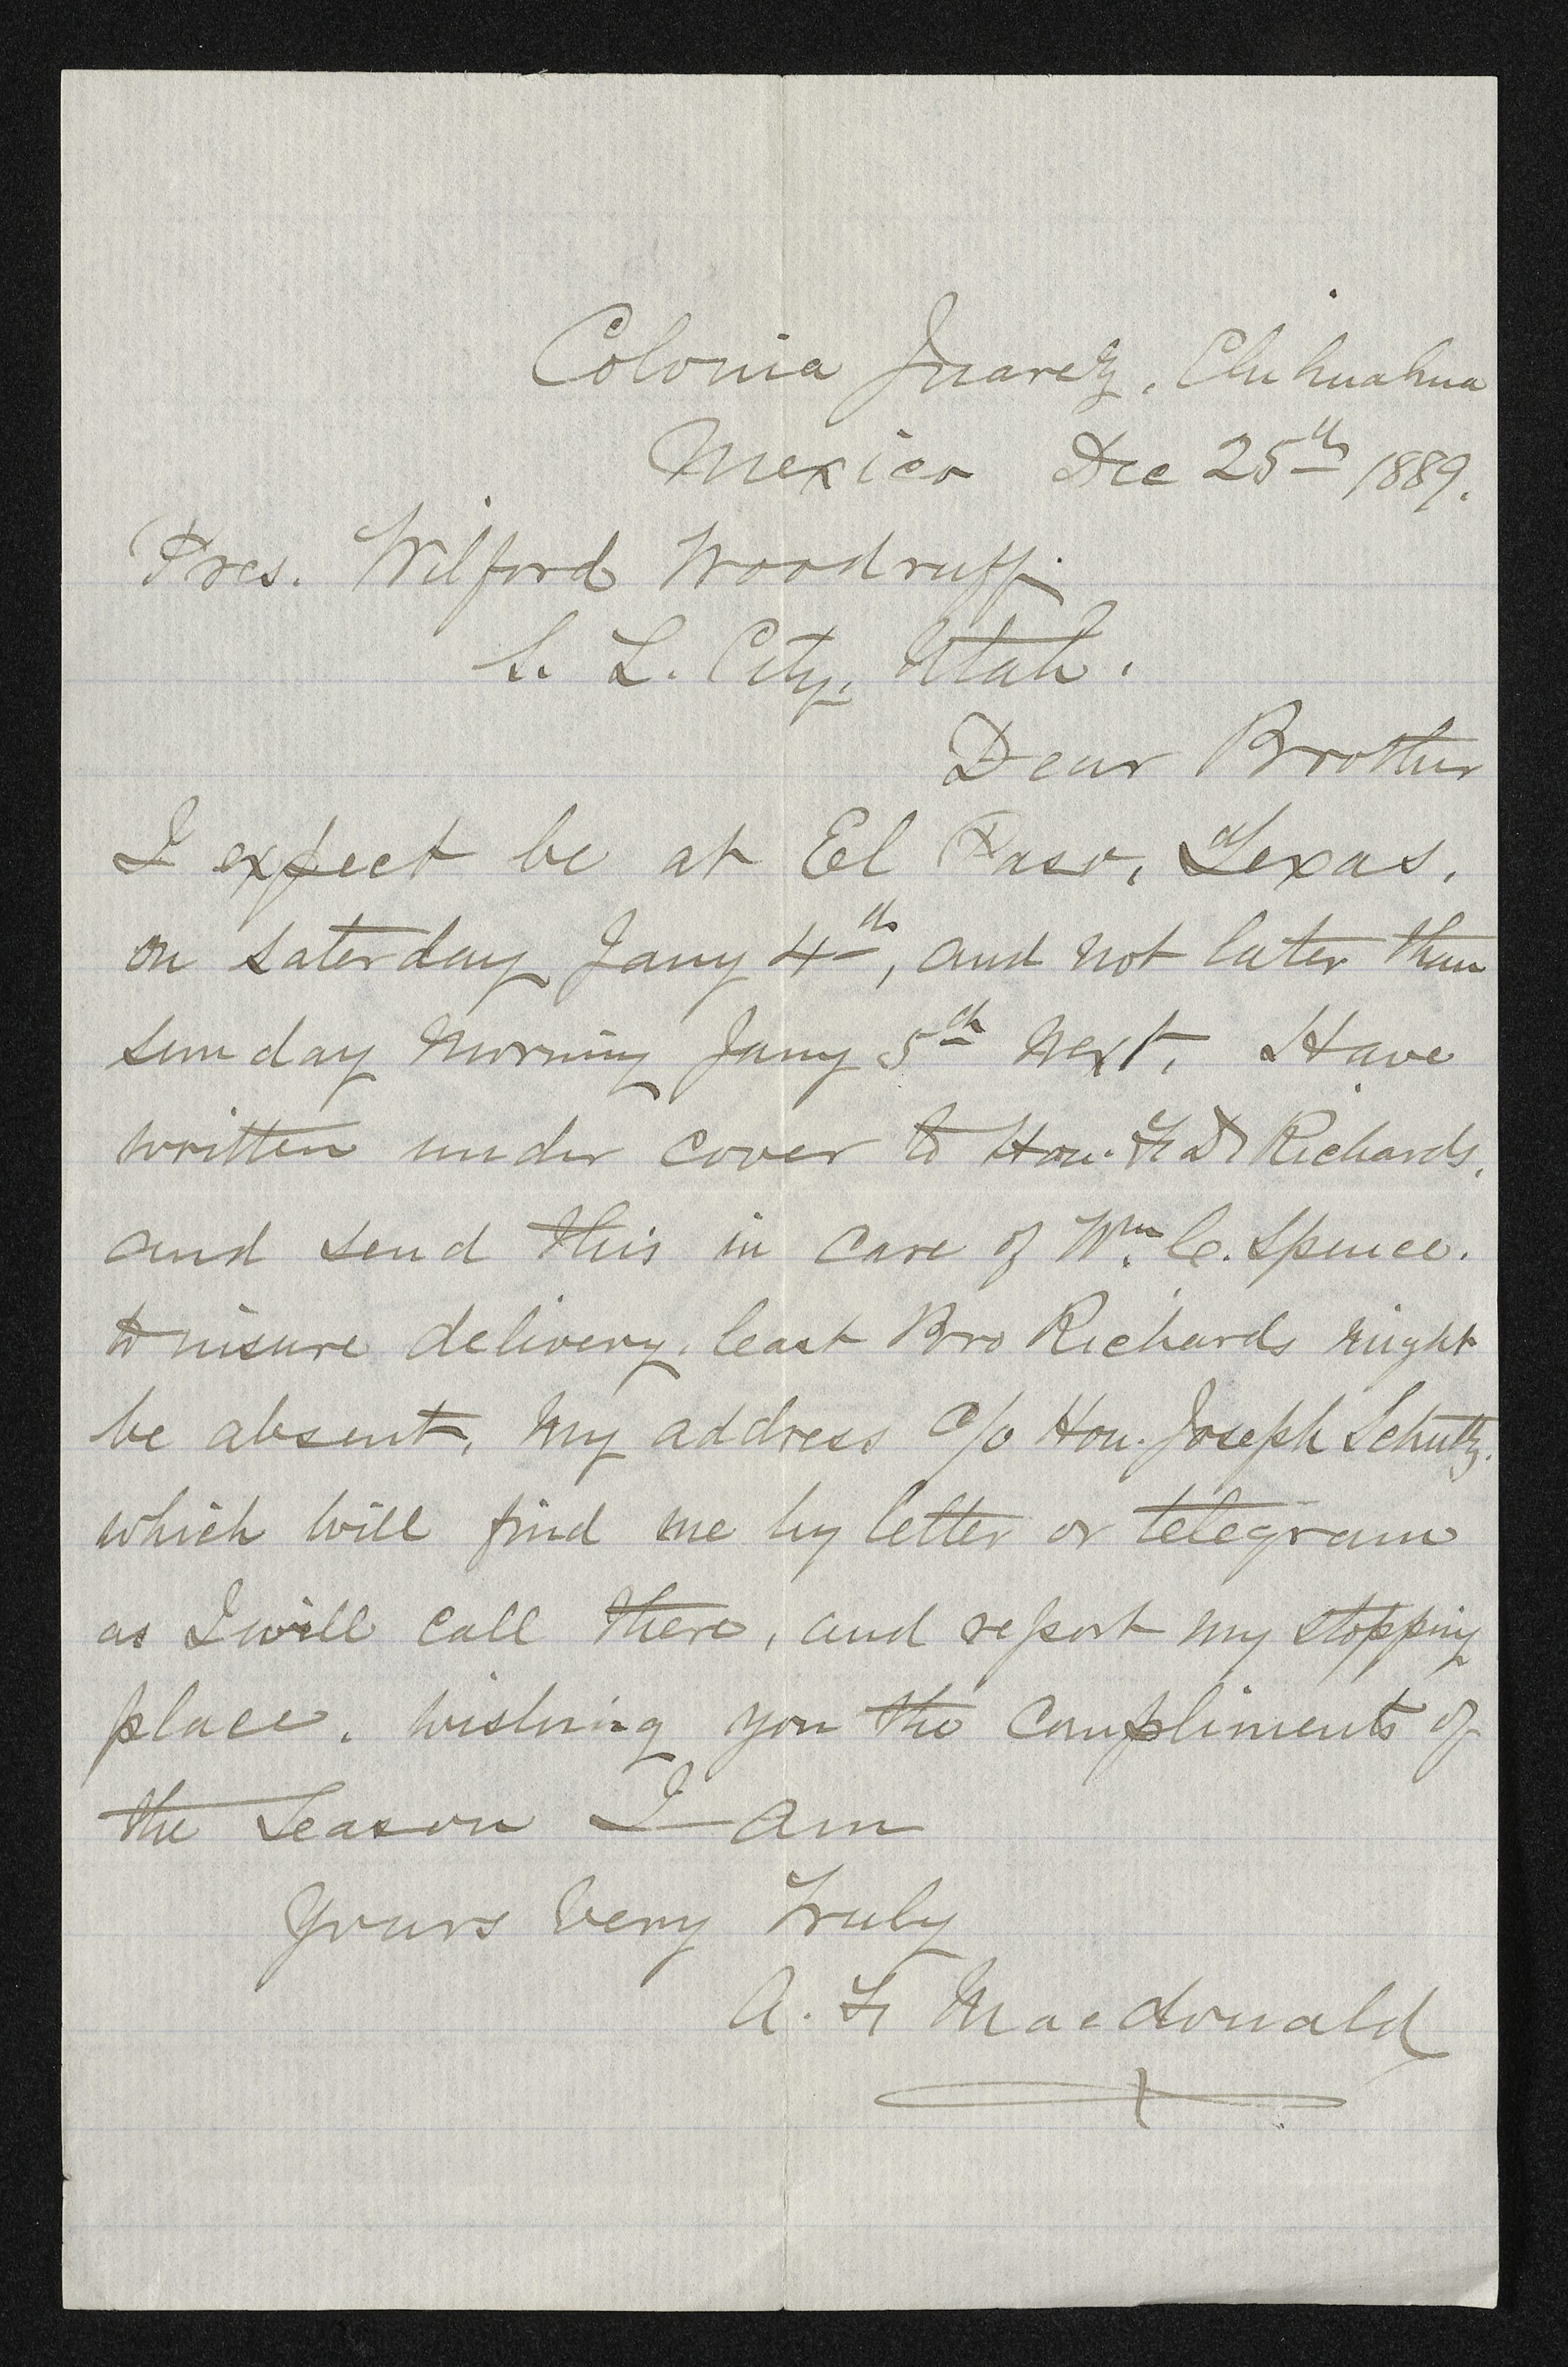 Colonia Juarez, Chihuahua
Mexico Dec 25th 1889.
Pres. Wilford Woodruff.
S. L. City, Utah.
Dear Brother
I expect be at El Paso, Texas.
on saterday Jany 4th, and not later than
sunday morning Jany 5th next. Have
written under cover to Hon. F D Richards.
and send this in care of Wm. C. Spence.
to insure delivery. least Bro Richards might
be absent, my address c/o Hon. Joseph Schutz.
which will find me by letter or telegram
as I will call there, and report my stopping
place. wishing you the compliments of
the Season I am
Yours very truly
A. F Macdonald